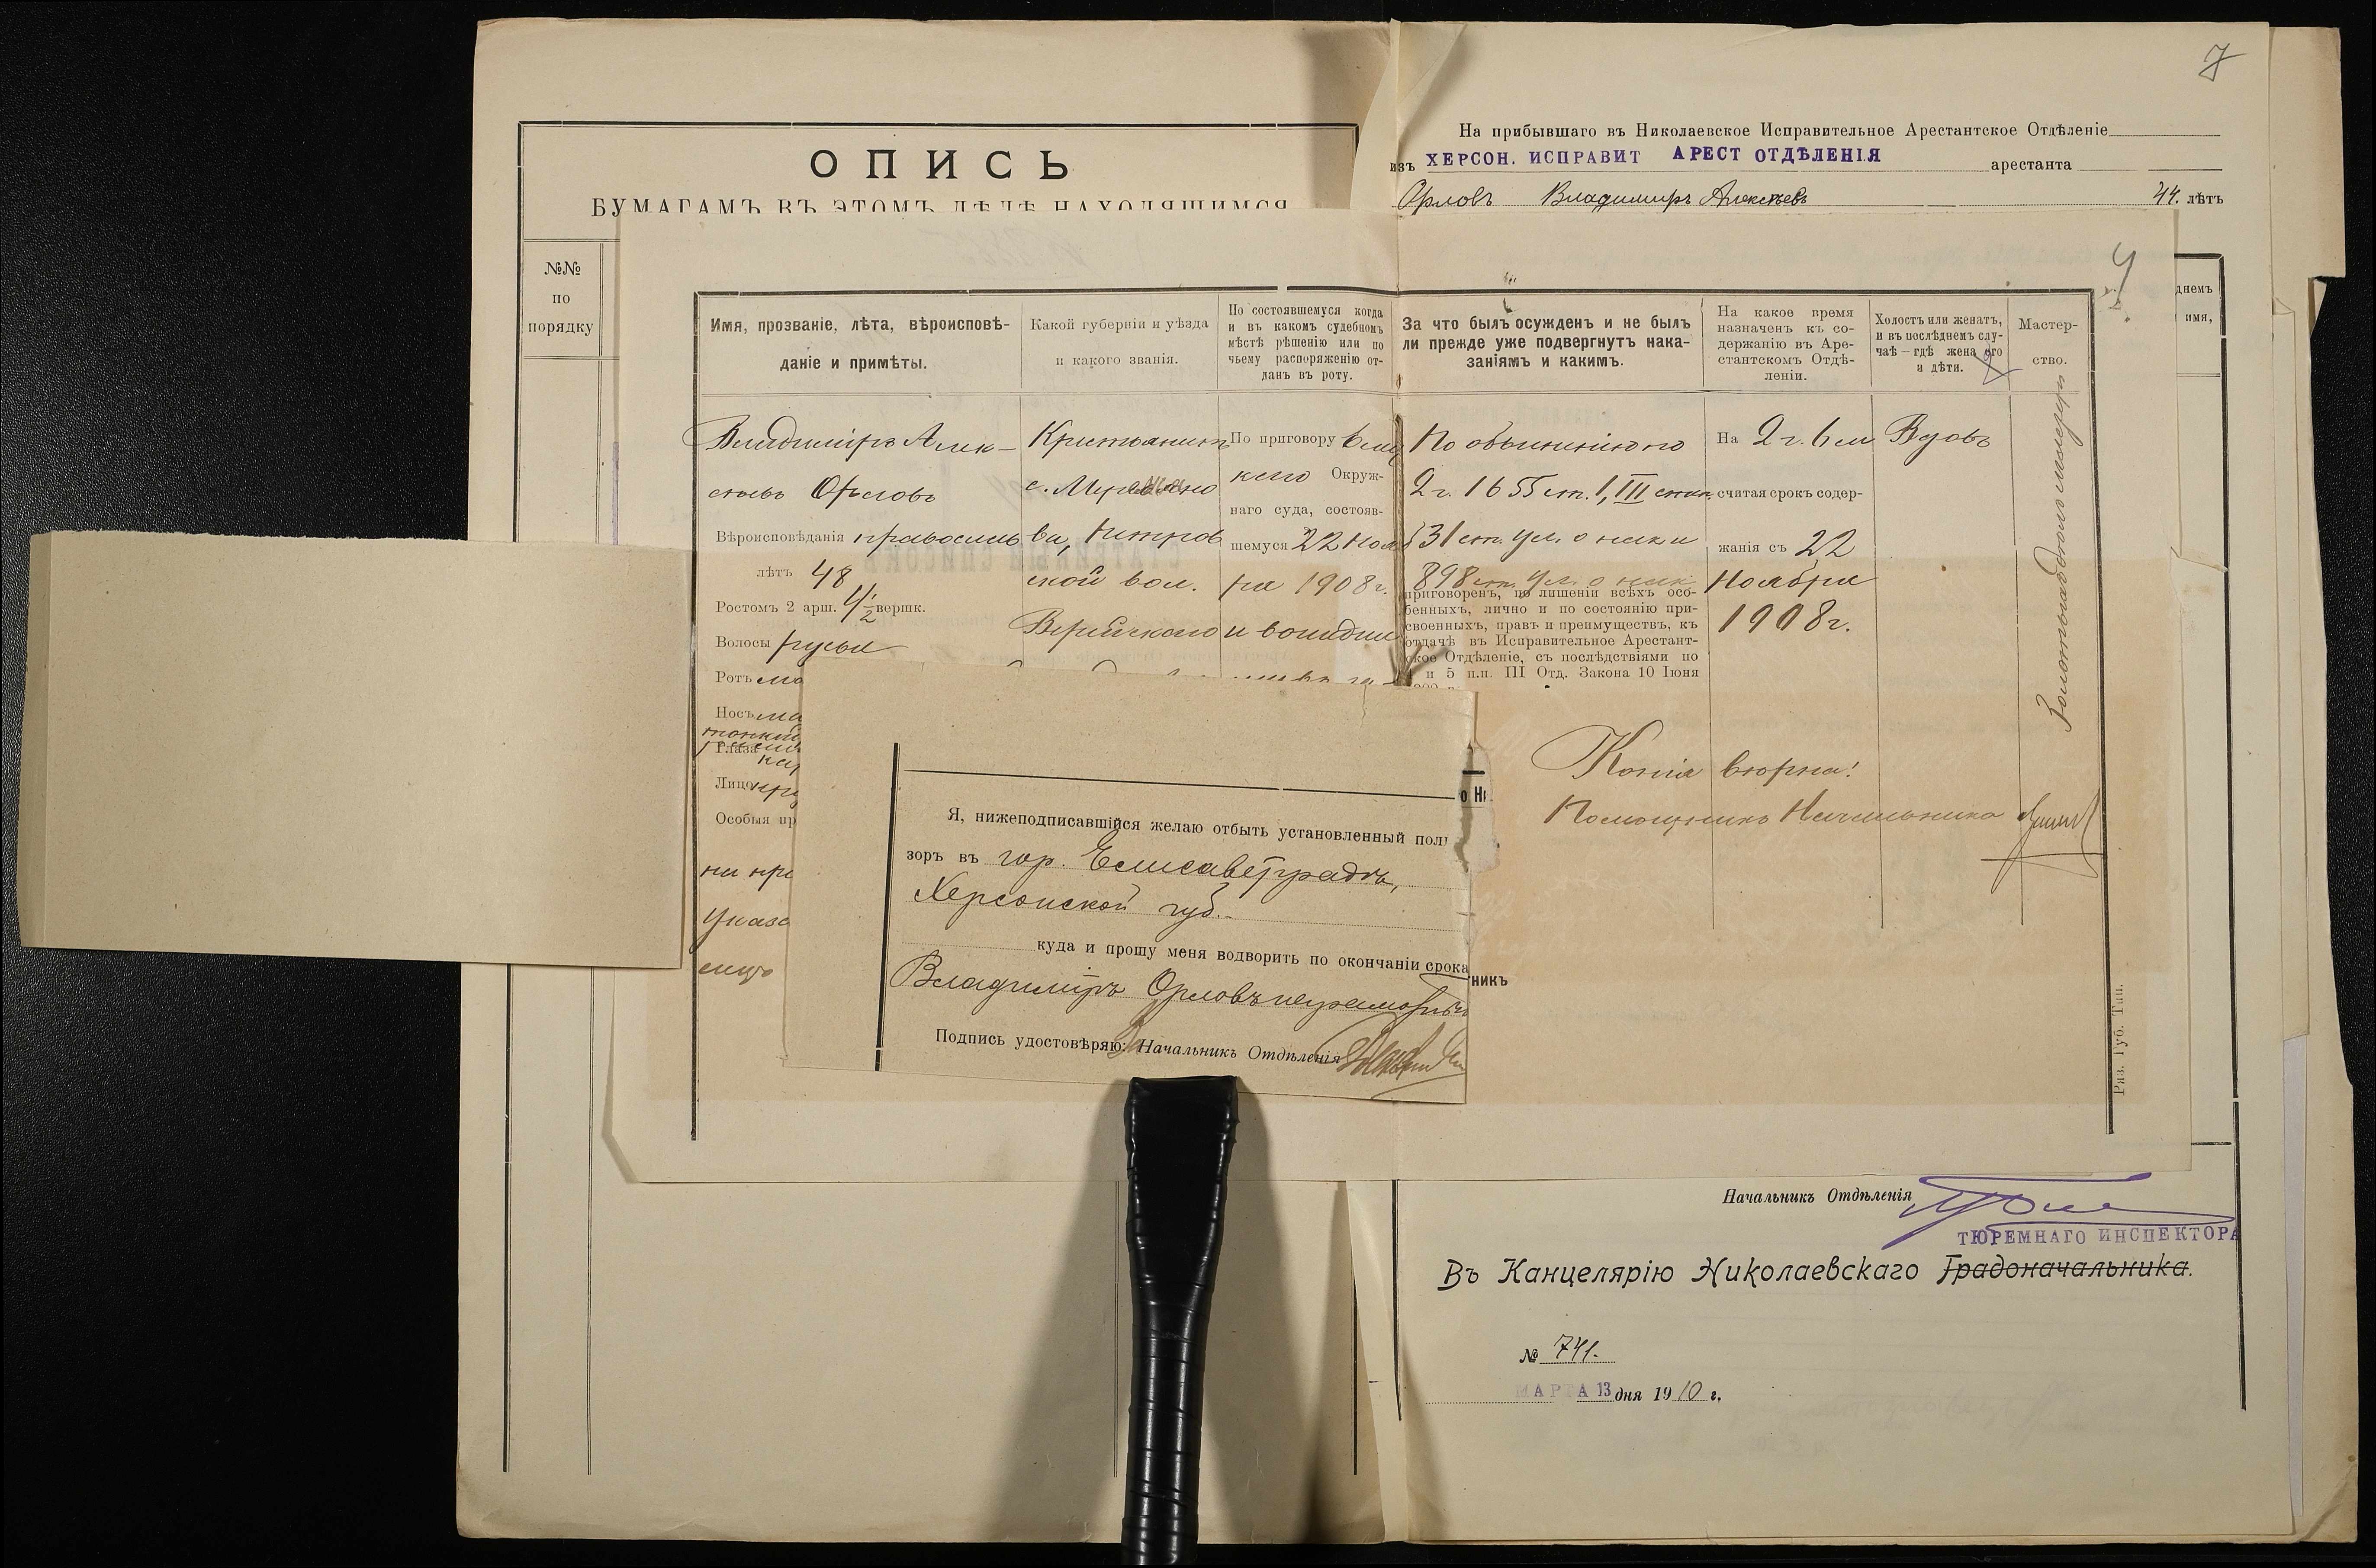 7
ОПИСЬ
БУМАГАМЪ ВЪ ЭТОМЪ ДѢЛѢ НАХОДЯЩИМСЯ
№№
по
порядку
На прибывшаго въ Николаевское Исправительное Арестантское Отдѣленіе
изъ ХЕРСОН. ИСПРАВИТ АРЕСТ ОТДѢЛЕНІЯ арестанта
Орловъ Владимиръ Алексѣевъ 44. лѣтъ
днемъ
имя,
Имя, прозваніе, лѣта, вѣроисповѣ-
даніе и примѣты.
Какой губерніи и уѣзда
и какого званія.
По состоявшемуся когда
и въ какомъ судебномъ
мѣстѣ рѣшенію или по
чьему распоряженію от-
данъ въ роту.
За что былъ осужденъ и не былъ
ли прежде уже подвергнутъ нака-
заніямъ и какимъ.
На какое время
назначенъ къ со-
держанію въ Аре-
стантскомъ Отдѣ-
леніи.
Холостъ или женатъ,
и въ послѣднемъ слу-
чаѣ – гдѣ жена его
и дѣти.
Мастер-
ство.
Владиміръ Алек-
сѣевъ Орловъ
Вѣроисповѣданія православ
лѣтъ 48
Ростомъ 2 арш. 4 1/2 вершк.
Волосы русые
Ротъ
Носъ
Глаза
Лицо
Особыя пр
на
указа
лицъ
Крестьянинъ
с.
ва, Петров
ской вол.
Верейскаго
По приговору
каго Окруж-
наго суда, состояв-
шемуся 22 Нояб
ря 1908 г.
и вошедш
По обвиненію по
2 ч. 1655 ст. 1, III степ.
31 ст. Ул. о нак и
898 ст. Ул. о нак.
приговоренъ, по лишеніи всѣхъ осо-
бенныхъ, лично и по состоянію при-
своенныхъ, правъ и преимуществъ, къ
отдачѣ въ Исправительное Арестант-
ское Отдѣленіе, съ послѣдствіями по
и 5 п.п. III Отд. Закона 10 Іюня
На 2 г. 6 м
считая срокъ содер-
жанія съ 22
Ноября
1908 г.
Вдовъ
Копія вѣрна!
Помощникъ Начальника
Ряз. Губ. Тип.
Я, нижеподписавшійся желаю отбыть установленный пол
зоръ въ гор. Елисаветградѣ,
Херсонской губ.
куда и прошу меня водворить по окончаніи срока
Владиміръ Орловъ неграмотный
Подпись удостовѣряю: Начальникъ Отдѣленія
никъ
Начальникъ Отдѣленія
ТЮРЕМНАГО ИНСПЕКТОРА
Въ Канцелярію Николаевскаго Градоначальника.
№ 741.
МАРТА 13 дня 1910 г.